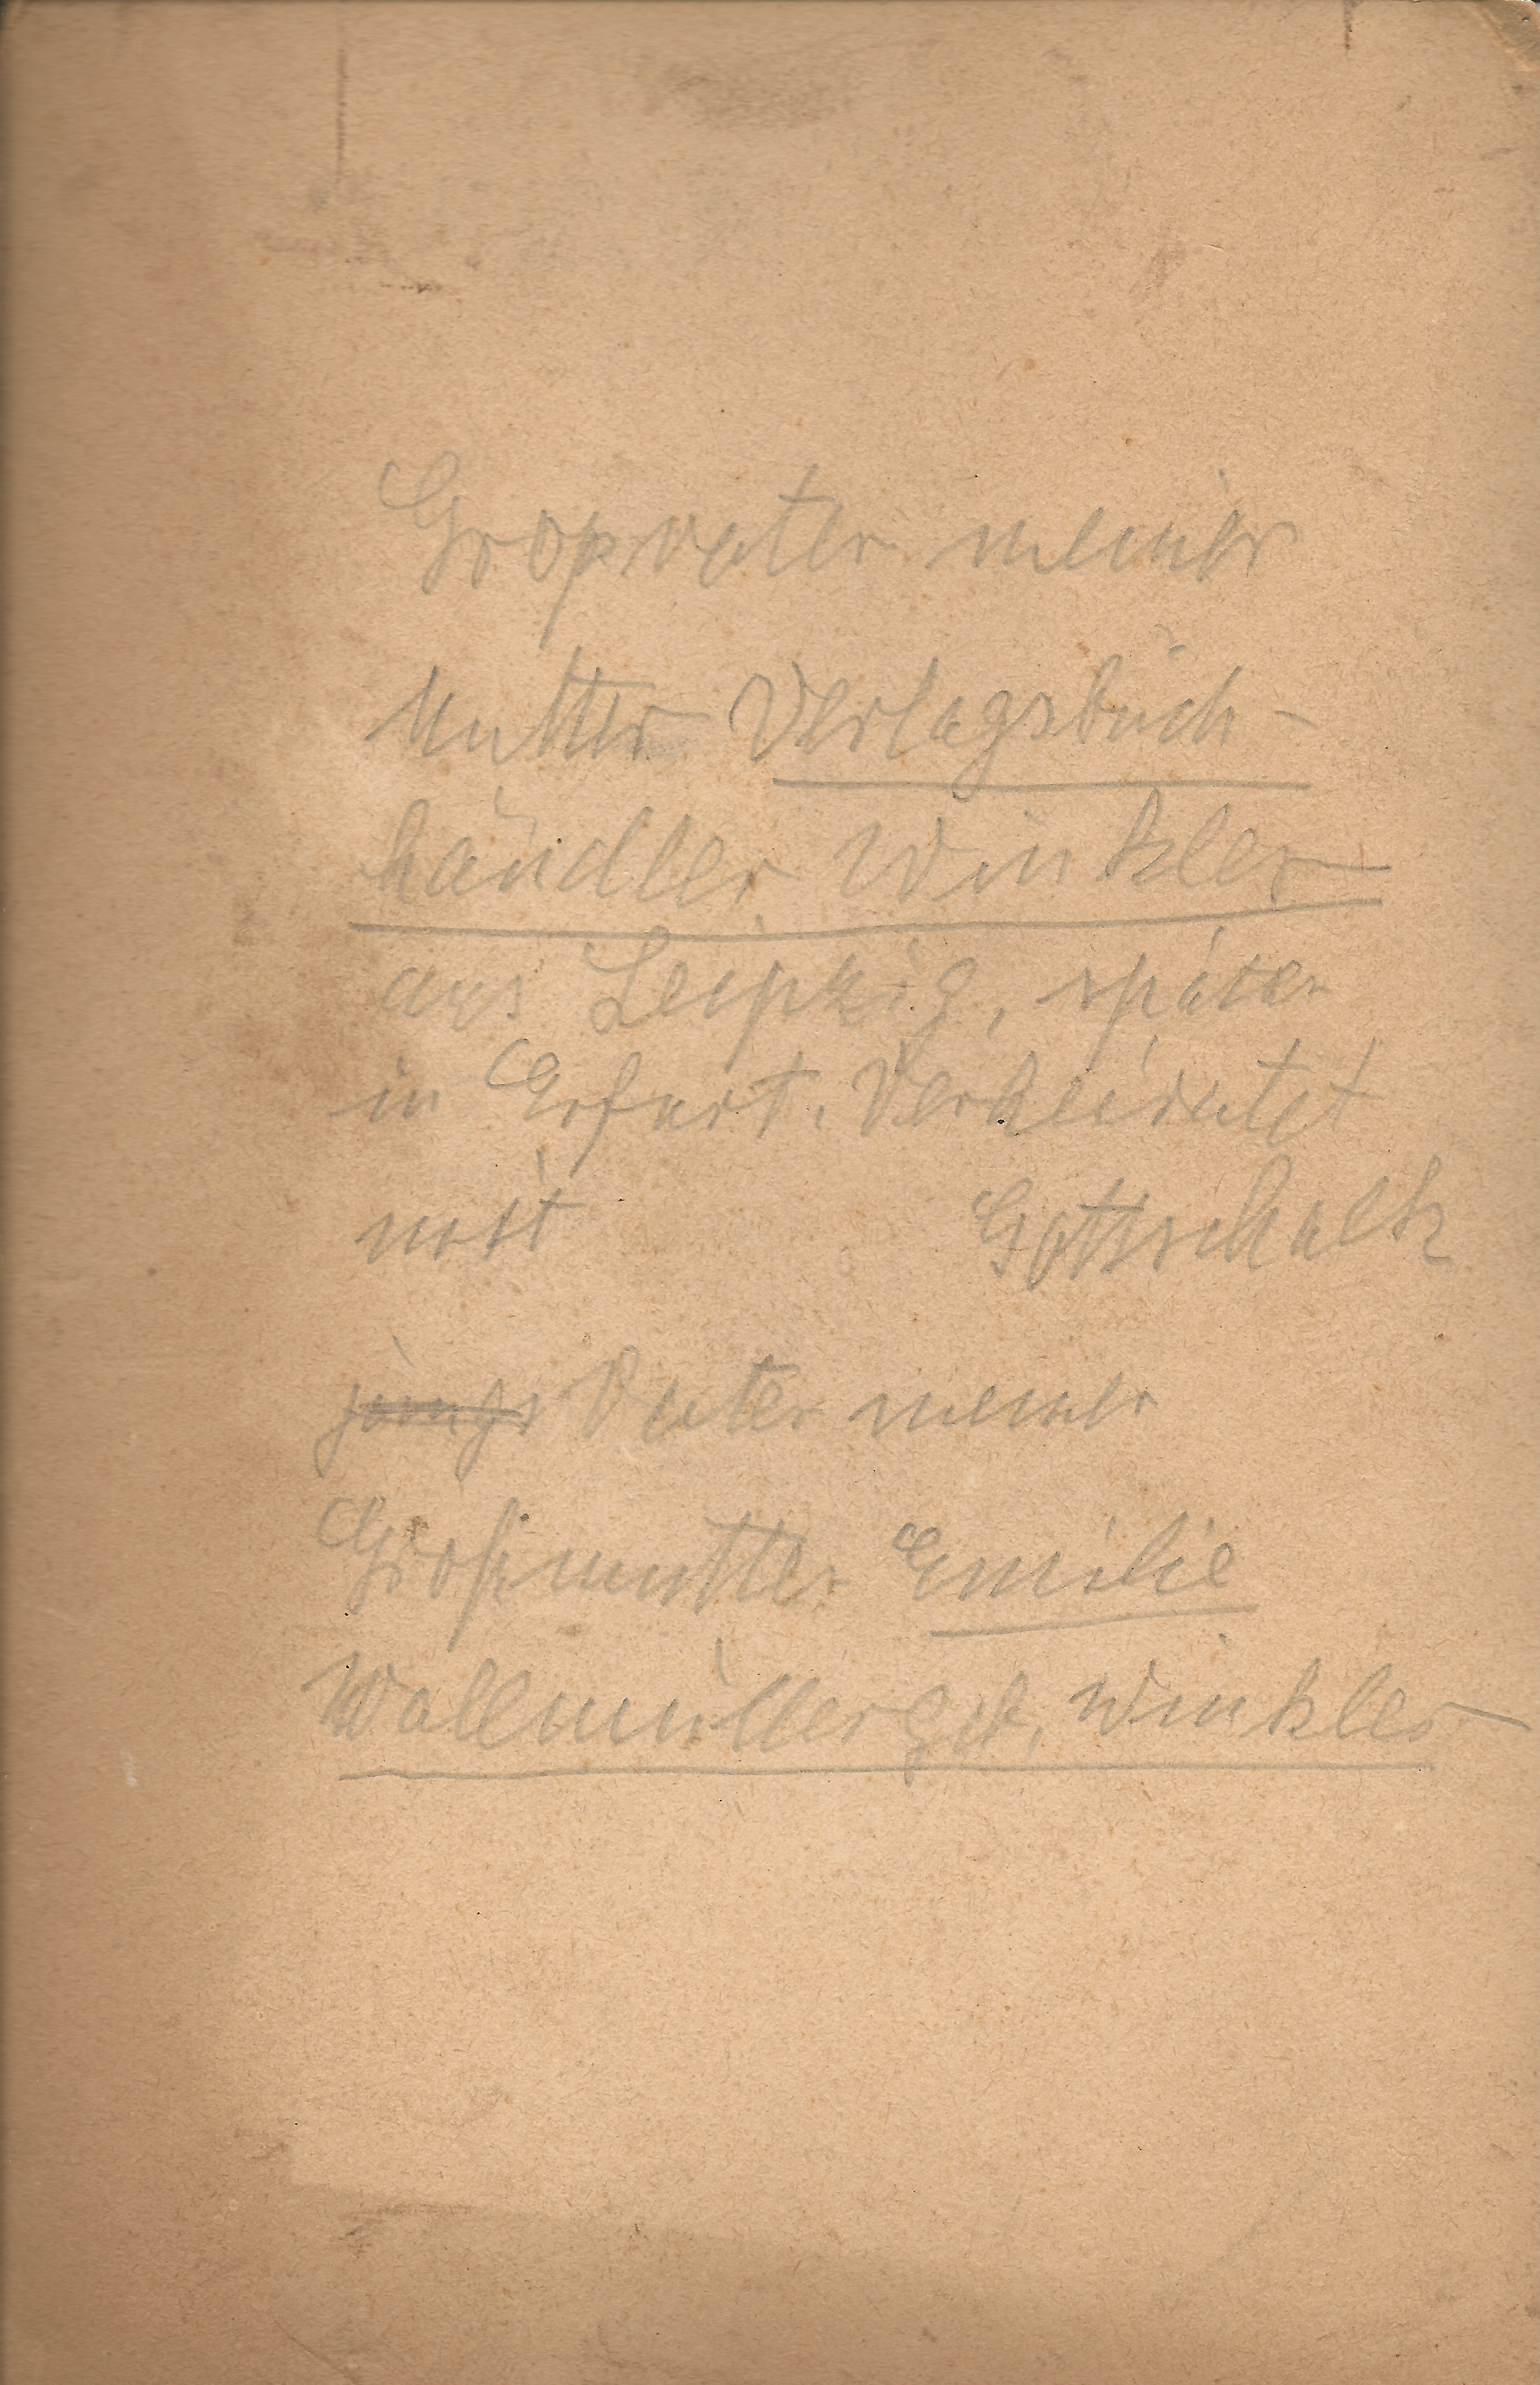 Großvater meiner
Mutter Verlagsbuch-
händler Winkler
aus Leipzig, später
in Erfurt. Verheiratet
mit Gottschalk
Vater meiner
Großmutter Emilie
Wallmüller geb. Winkler